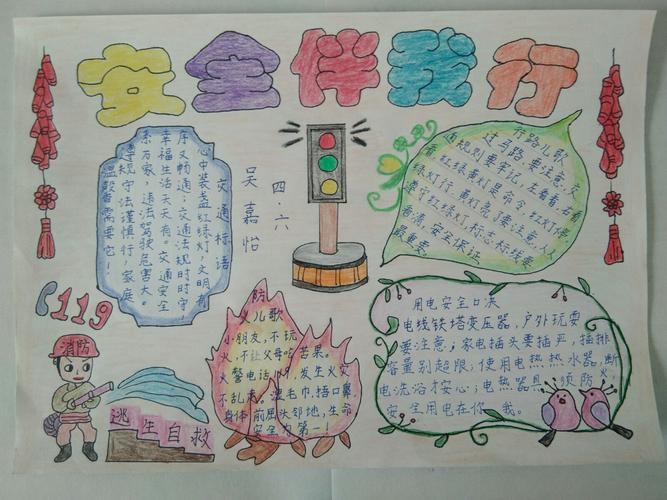 安全伴我行
交通标语
心中装盏红绿灯，文明有
序又畅通；交通法规时时守
幸福生活天天有。交通安全
系万家，违法驾驶危害大。
遵规守法谨慎行，家庭
温馨需要它！
四.六
吴嘉怡
行路儿歌
过马路，要注意，交
通规则要牢记，左看看右看
看，红绿黄灯是命令，红灯停
绿灯行，黄灯亮了要注意，人人
遵守红绿灯，标志标线要
看清，安全保证
最重要。
119
消防
逃生自救
防
火儿歌
小朋友，不玩
火，不让父母吃苦果。
火警电话119，发生火灾
不乱来。湿毛巾，捂口鼻，
身体前屈头邻地，生命
安全为第一！
用电安全口决
电线铁塔变压器，户外玩耍
要注意；家电插头要插严，插排
容量别超限；使用电热热水器，断
电洗浴才安心；电热器具须防火，
安全用电在你我。